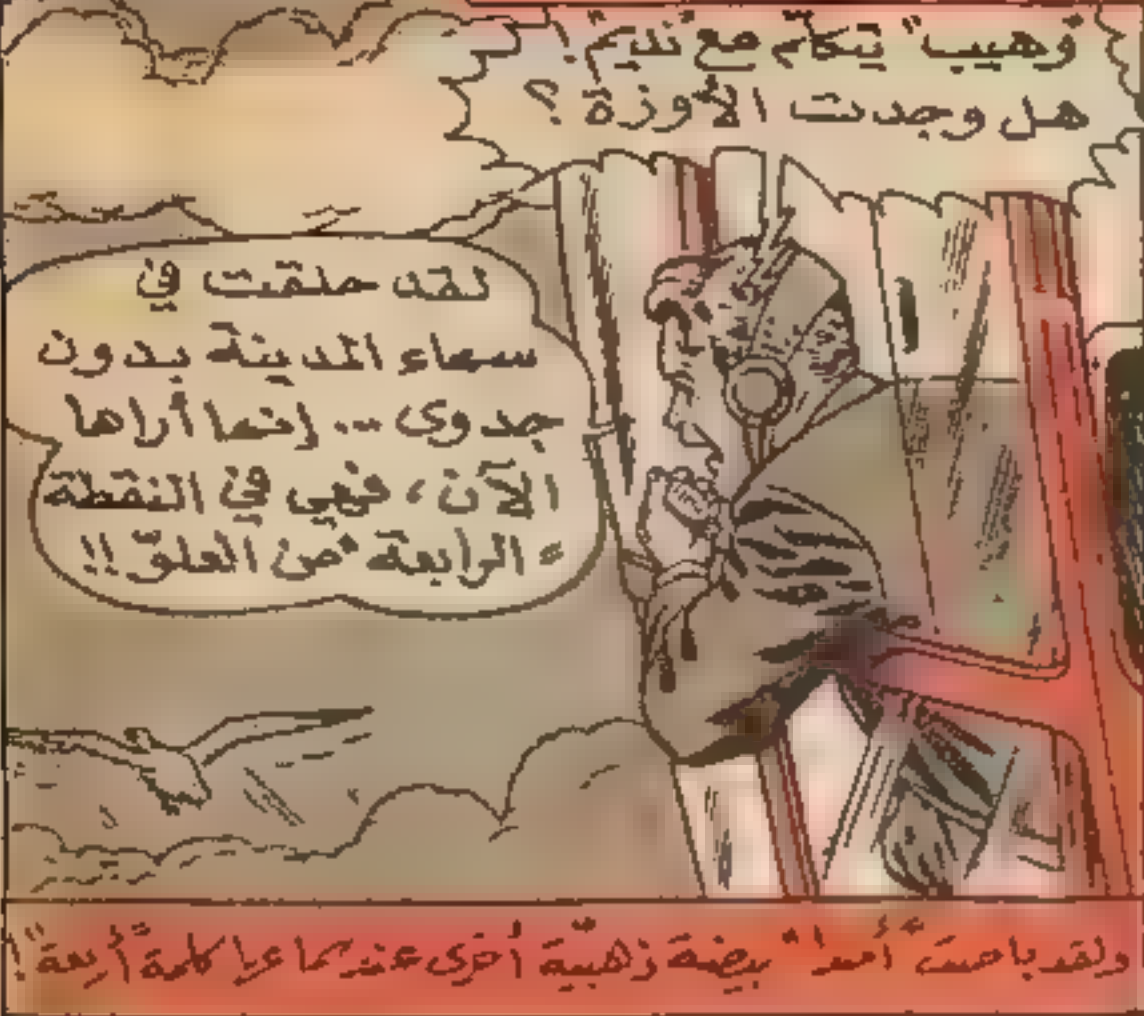 "وهيب" يتكلم مع نديم!
هل وجدت الأوزة ؟
لقد حلقت في
سماء المدينة بدون
جدوى ... إنما أراها
الآن ، فهي في النقطة
الرابعة من العلوّ !!
ولقد باضت بيضة ذهبيّة أخرى عندما كلمة "أربعة"!